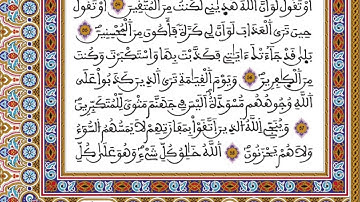 اَوْ تَقُولَ لَوَ اَنَّ اَ۬للَّهَ هَد۪ىٰنِے لَكُنتُ مِنَ اَ۬لْمُتَّقِينَ اَوْ تَقُولَ
حِينَ تَرَي اَ۬لْعَذَابَ لَوَ اَنَّ لِے كَرَّةً فَأَكُونَ مِنَ اَ۬لْمُحْسِنِينَ
بَل۪ىٰ قَدْ جَآءَتْكَ ءَايَٰتِے فَكَذَّبْتَ بِهَا وَاسْتَكْبَرْتَ وَكُنتَ
مِنَ اَ۬لْكٰ۪فِرِينَ وَيَوْمَ اَ۬لْقِيَٰمَةِ تَرَي اَ۬لذِينَ كَذَبُواْ عَلَي
اَ۬للَّهِ وُجُوهُهُم مُّسْوَدَّةٌ اَلَيْسَ فِے جَهَنَّمَ مَثْويٗ لِّلْمُتَكَبِّرِينَ
وَيُنَجِّے اِ۬للَّهُ اُ۬لذِينَ اَ۪تَّقَوْاْ بِمَفَازَتِهِمْ لَا يَمَسُّهُمُ اُ۬لسُّوٓءُ
وَلَا هُمْ يَحْزَنُونَ اَ۬للَّهُ خَٰلِقُ كُلِّ شَےْءٖ وَهُوَ عَلَيٰ كُلِّ